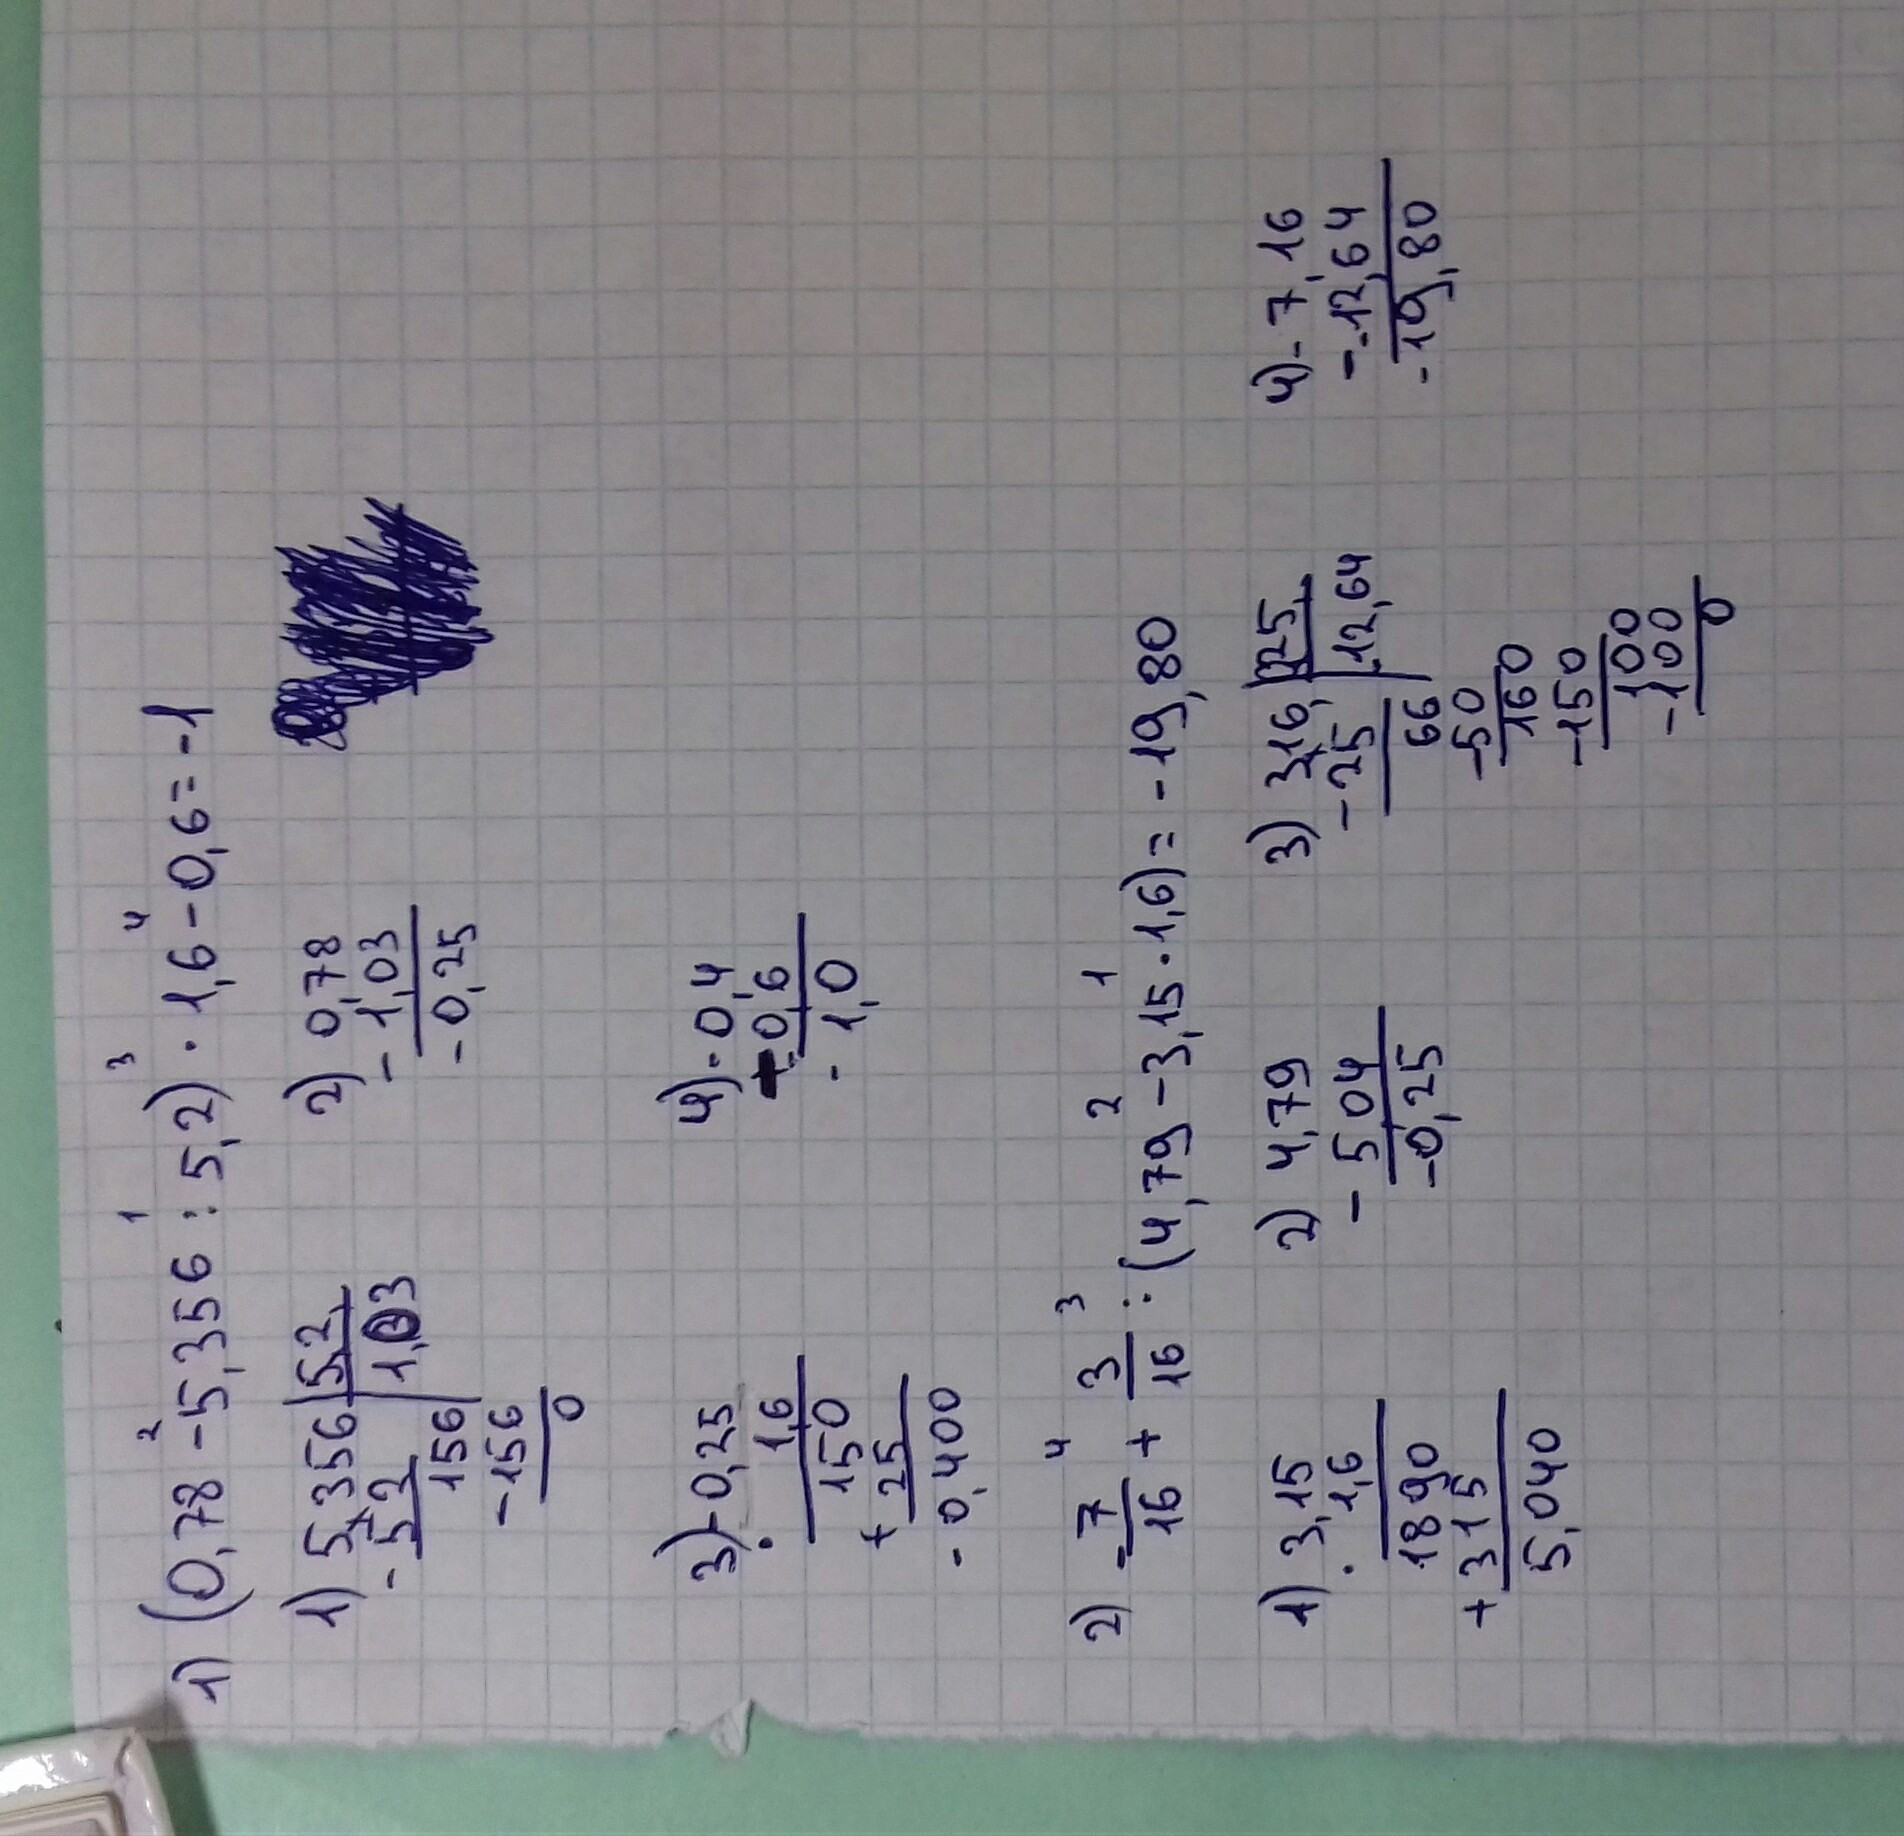 1) (0,78 - 5,356 : 5,2) · 1,6 - 0,6 = -1
2 1 3 4
1) 5,356 | 5,2
- 5 2 | 1,03
156
- 156
0
2) 0,78
- 1,03
- 0,25
3) - 0,25
· 1,6
150
+ 25
- 0,400
4) - 0,4
+ -0,6
- 1,0
2) - 7/16 + 3/16 : (4,79 - 3,15 · 1,6) = -19,80
4 3 2 1
1) 3,15
· 1,6
1890
+ 315
5,040
2) 4,79
- 5 04
-0,25
3) 316, | 25,
- 25 | 12,64
66
- 50
160
- 150
100
- 100
0
4) - 7,16
- -12,64
- 19,80